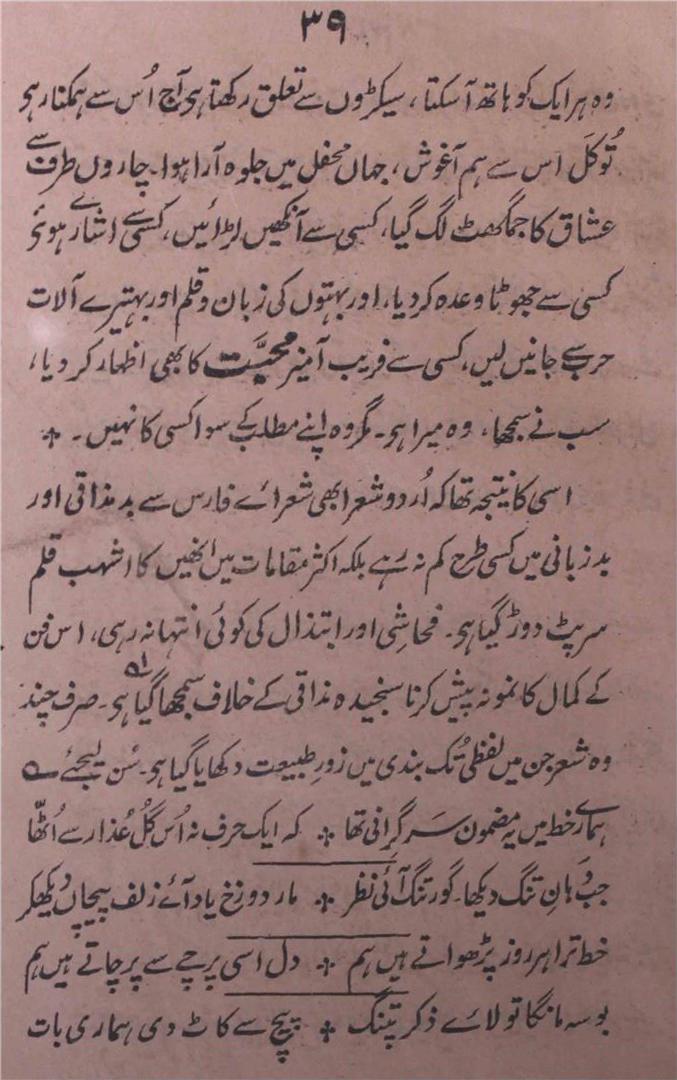 ۳۹
وہ ہر ایک کو ہاتھ آسکتا، سیکڑوں سے تعلق رکھتا ہی آج اُس سے ہمکنار ہی
تُو کَل اس سے ہم آغوش، جہاں محفل میں جلوہ آرا ہوا۔ چاروں طرف سے
عشاق کا جمگھٹ لگ گیا، کسی سے آنکھیں لڑائیں، کسی سے اشارے ہوئی
کسی سے جھوٹا وعدہ کر دیا، اور بہتوں کی زبان و قلم اور بہتیرے آلات
حرب سے جانیں لیں، کسی سے فریب آمیز محبَّت کا بھی اظہار کر دیا،
سب نے سمجھا، وہ میرا ہی۔ مگر وہ اپنے مطلب کے سوا کسی کا نہیں۔
اسی کا نتیجہ تھا کہ اُردو شعرا بھی شعرائے فارس سے بدمذاقی اور
بدزبانی میں کسی طرح کم نہ رہے بلکہ اکثر مقامات میں انھیں کا اشہب قلم
سرپٹ دوڑ گیا ہی۔ فحاشی اور ابتذال کی کوئی انتہا نہ رہی، اس فن
کے کمال کا نمونہ پیش کرنا سنجیدہ مذاقی کے خلاف سمجھا گیا ہی۔ صرف چند
وہ شعر جن میں لفظی تُک بندی میں زورِ طبیعت دکھایا گیا ہی۔ سُن لیجئے
ہمارے خط میں یہ مضمون سرگرانی تھا ؞ کہ ایک حرف نہ اُس گلُ عُذار سے اُٹھّا
جب دَہانِ تنگ دیکھا۔ گور تنگ آئی نظر ؞ مار دوزخ یاد آئے زلف پیچاں دیکھکر
خط ترا ہر روز پڑھواتے ہیں ہم ؞ دل اسی پرچے سے پرچاتے ہیں ہم
بوسہ مانگا تو لائے ذکر پتنگ ؞ پیچ سے کاٹ دی ہماری بات